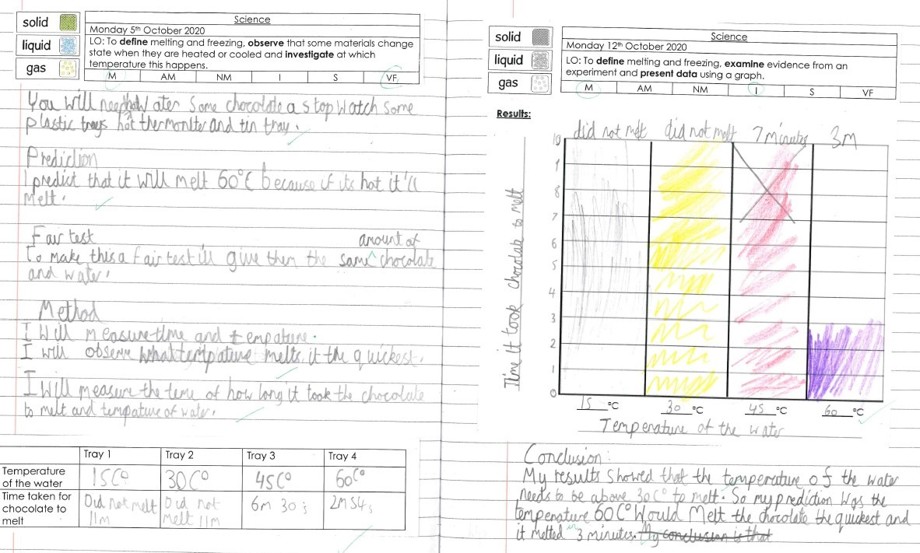 solid
liquid
gas
Science
Monday 5th October 2020
LO: To define melting and freezing, observe that some materials change
state when they are heated or cooled and investigate at which
temperature this happens.
M AM NM I S VF
some chocolate a stop watch some
plastic trays hot thermoniter and tin tray.
Prediction
I predict that it will melt 60°C because if its hot it'll
melt.
Fair test
amount of
To make this a fair test ill give them the same chocolate
and water.
Method
I Will measure time and tempature.
I will observe what tempature melts it the quickest.
I Will measure the time of how long it took the chocolate
to melt and tempature of water.
Tray 1 Tray 2 Tray 3 Tray 4
Temperature of the water 15C° 30C° 45C° 60C°
Time taken for chocolate to melt Did not melt 11m Did not melt 11m 6m 30s 2m 54s
solid
liquid
gas
Science
Monday 12th October 2020
LO: To define melting and freezing, examine evidence from an
experiment and present data using a graph.
M AM NM I S VF
Results:
did not melt did not melt 7 minutes 3m
10
9
8
7
6
5
4
3
2
1
0
Time it took chocolate to melt
15 °C 30 °C 45 °C 60 °C
Temperature of the water
Conclusion:
My results showed that the temperature of the water
needs to be above 30C° to melt. So my prediction was the
temperature 60C° Would Melt the chocolate the quickest and
it melted in 3 minutes. My conclusion is that